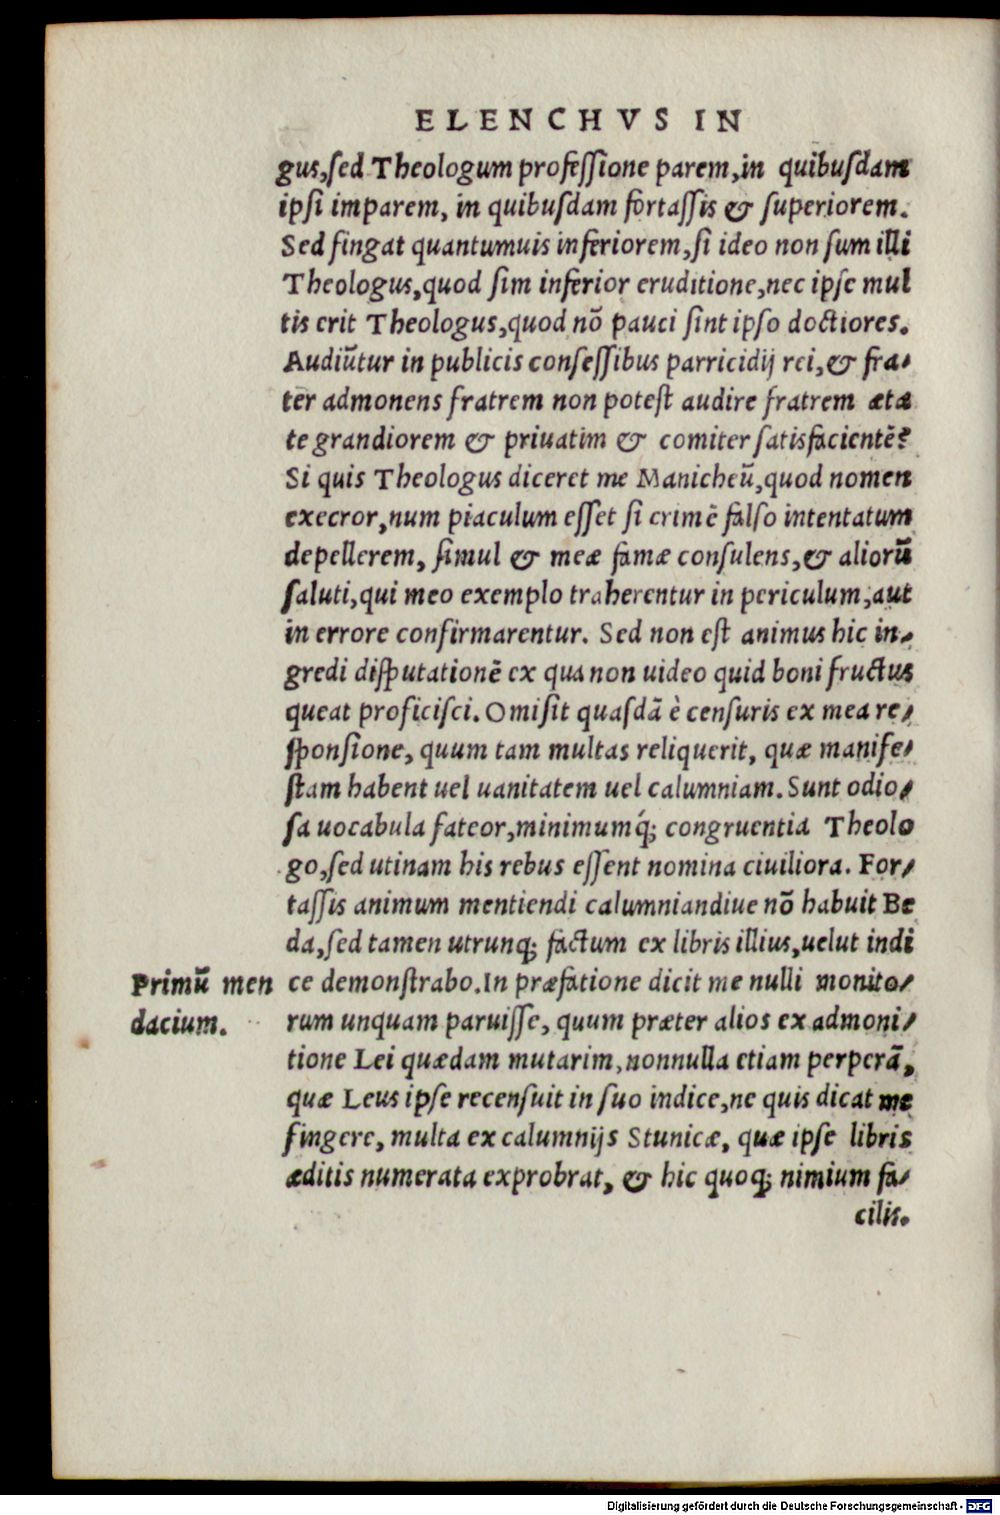 ELENCHVS IN
gus,sed Theologum professione parem,in quibusdam
ipsi imparem, in quibusdam fortassis & superiorem.
Sed fingat quantumuis inferiorem,si ideo non sum illi
Theologus,quod sim inferior eruditione,nec ipse mul
tis erit Theologus,quod nõ pauci sint ipso doctiores.
Audiũtur in publicis consessibus parricidij rei,& fra-
ter admonens fratrem non potest audire fratrem æta
te grandiorem & priuatim & comiter satisfacientẽ?
Si quis Theologus diceret me Manicheũ,quod nomen
execror,num piaculum esset si crimẽ falso intentatum
depellerem, simul & meæ famæ consulens,& aliorũ
saluti,qui meo exemplo traherentur in periculum,aut
in errore confirmarentur. Sed non est animus hic in-
gredi disputationẽ ex qua non uideo quid boni fructus
queat proficisci. Omisit quasdã è censuris ex mea re-
sponsione, quum tam multas reliquerit, quæ manife-
stam habent uel uanitatem uel calumniam. Sunt odio-
sa uocabula fateor,minimumq́; congruentia Theolo
go,sed utinam his rebus essent nomina ciuiliora. For-
tassis animum mentiendi calumniandiue nõ habuit Be
da,sed tamen utrunq; factum ex libris illius,uelut indi
Primũ men
dacium.
ce demonstrabo.In præfatione dicit me nulli monito-
rum unquam paruisse, quum præter alios ex admoni-
tione Lei quædam mutarim,nonnulla etiam perperã,
quæ Leus ipse recensuit in suo indice,ne quis dicat me
fingere, multa ex calumnijs Stunicæ, quæ ipse libris
æditis numerata exprobrat, & hic quoq; nimium fa-
cilis.
Digitalisierung gefördert durch die Deutsche Forschungsgemeinschaft - DFG